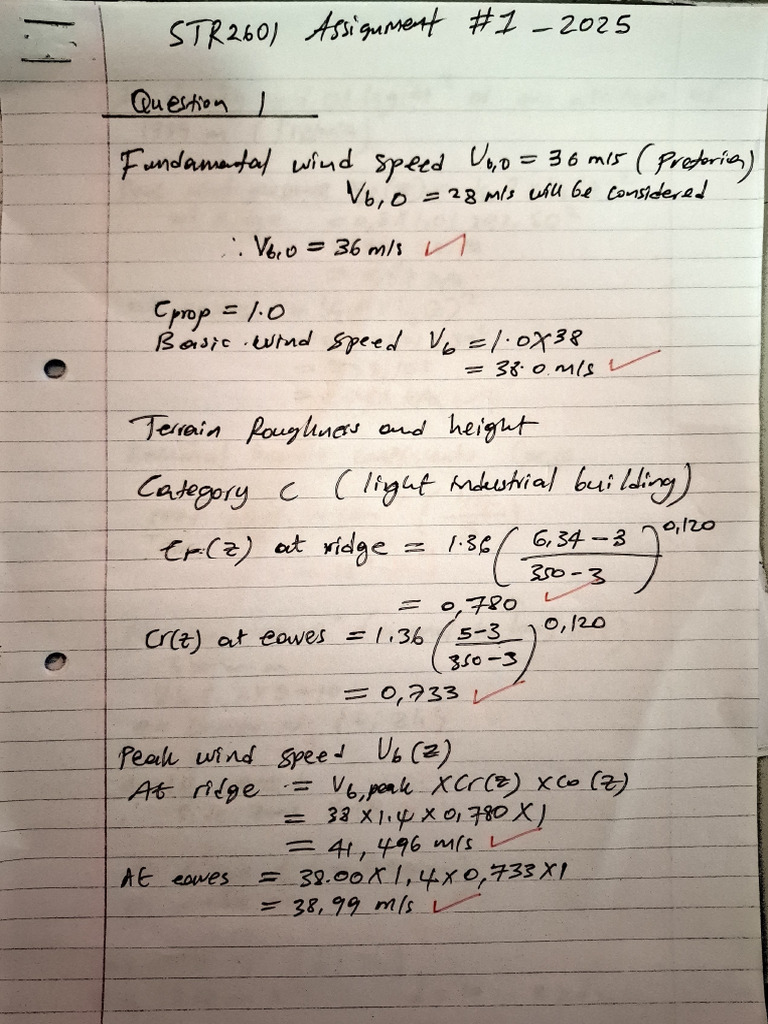 STR2601 Assignment #1 - 2025
Question 1
Fundamental wind speed Vb,0 = 36 m/s (Pretoria)
Vb,0 = 28 m/s will be considered
∴ Vb,0 = 36 m/s
Cprop = 1.0
Basic wind speed Vb = 1.0 X 38
= 38.0 m/s
Terrain Roughness and height
Category C (light industrial building)
Cr(z) at ridge = 1.36 ( 6,34 - 3 / 350 - 3 ) 0,120
= 0,780
Cr(z) at eaves = 1.36 ( 5-3 / 350-3 ) 0,120
= 0,733
Peak wind speed Vb(z)
At ridge = Vb,peak X Cr(z) x Co (z)
= 38 X 1.4 x 0,780 X 1
= 41,496 m/s
At eaves = 38.00 X 1,4 x 0,733 X 1
= 38,99 m/s